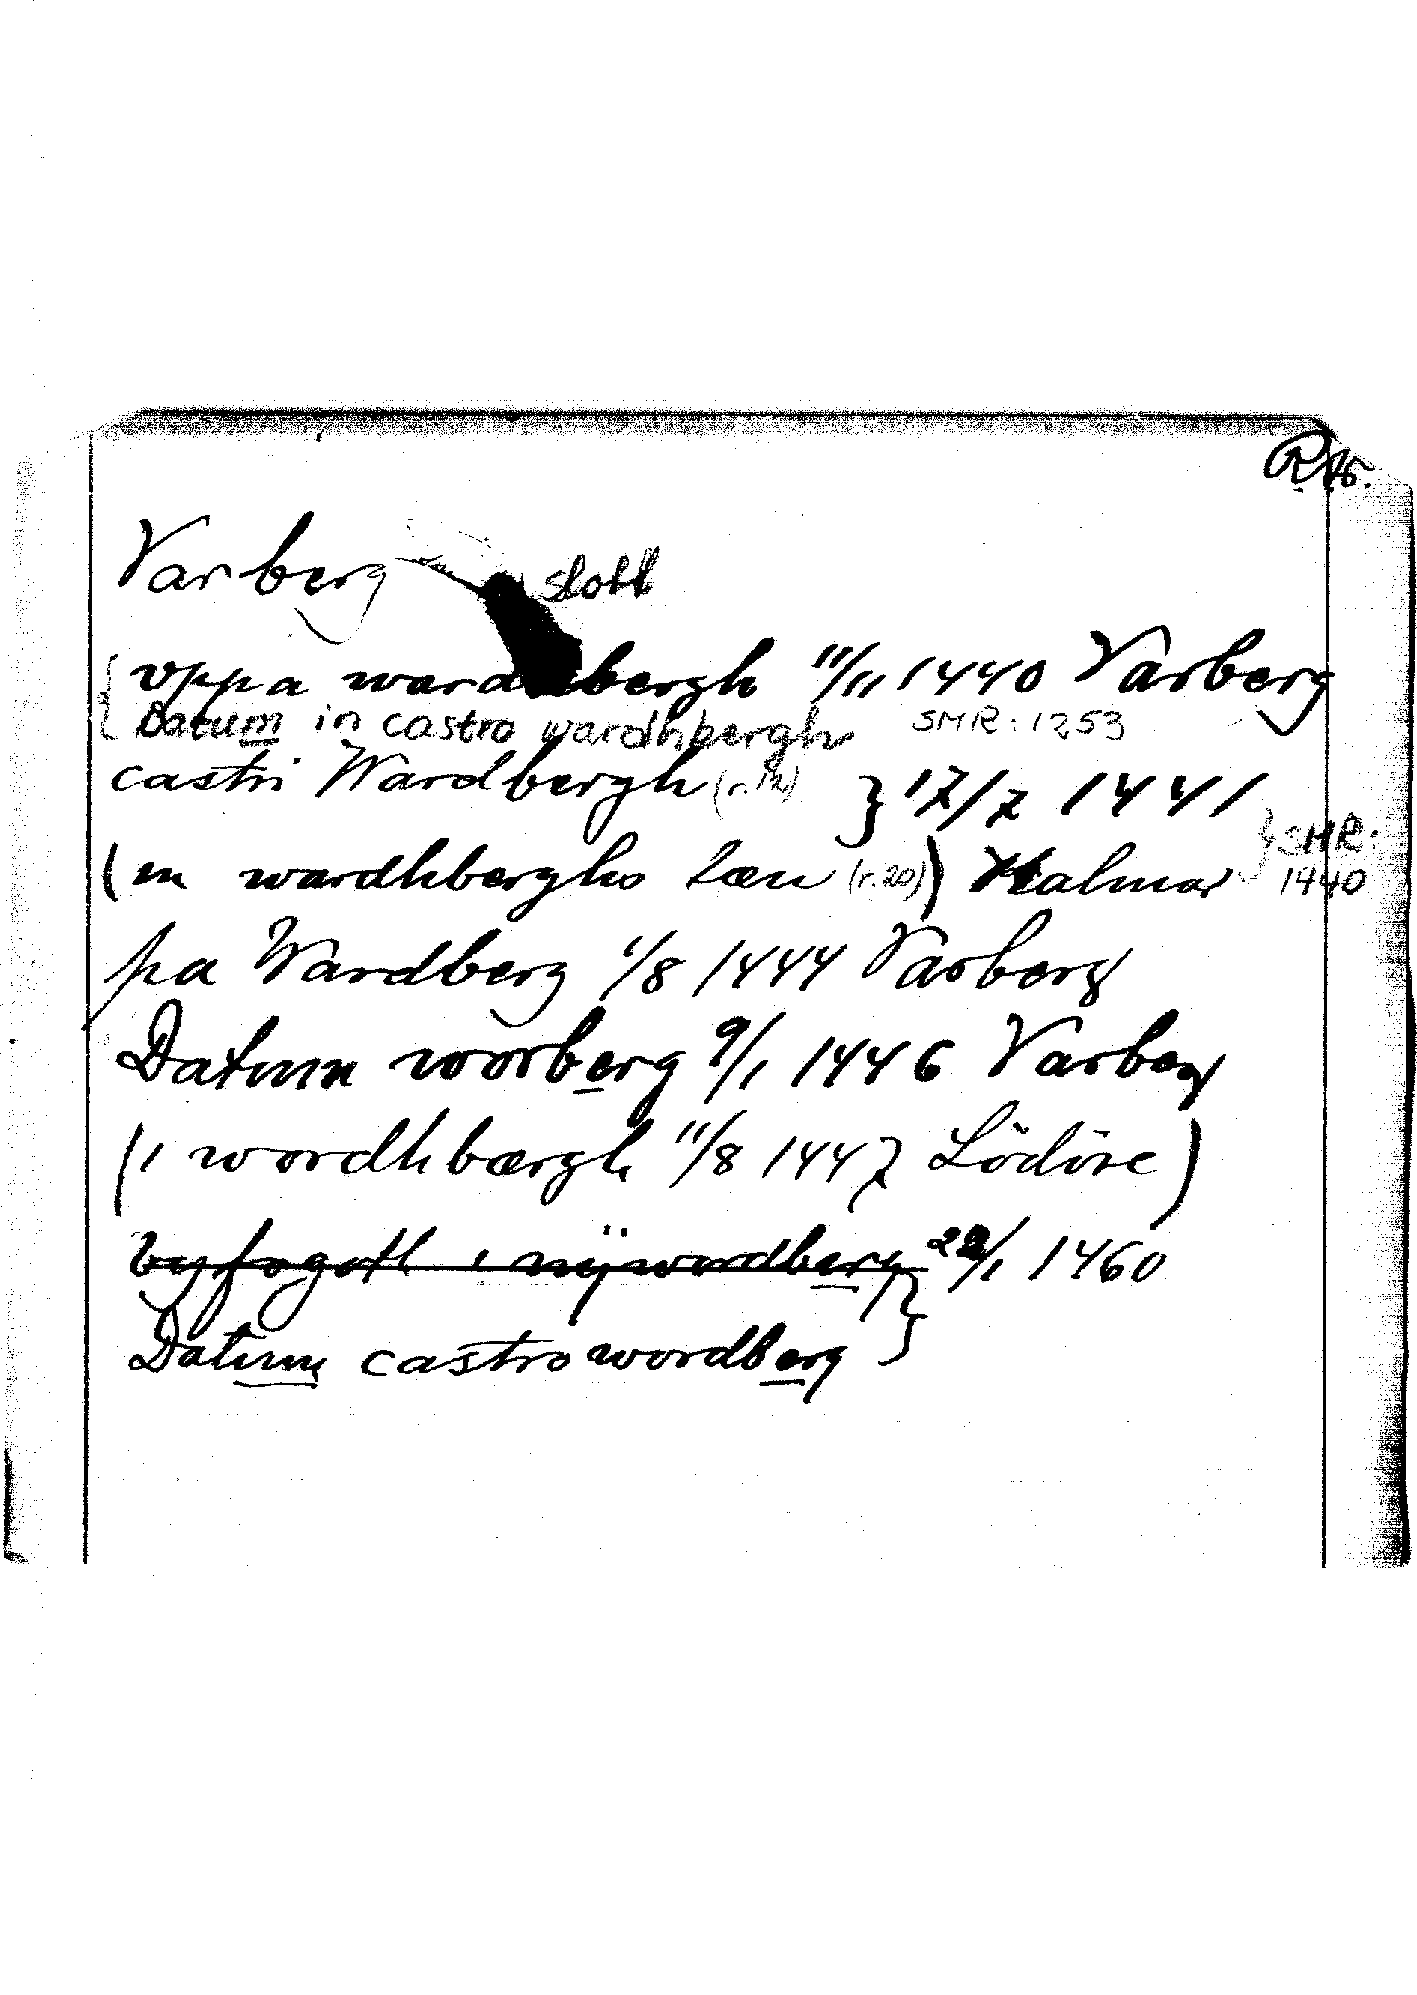 R.Ar.
Varberg slott
{ vppa wardhbergh 11/11 1440 Varberg
{ Datum in castro wardhbergh SMR: 1253
castri Wardbergh (r. 12) } 17/7 1441
(en wardhberghs læn (r. 20)) Kalmar } SMR: 1440
pa Wardberg 1/8 1444 Varberg
Datum worberg 9/1 1446 Varberg
(i wordhbærgh 11/8 1447 Lödöse)
byfogatt i nÿwordberg 22/1 1460
Datum castro wordberg }